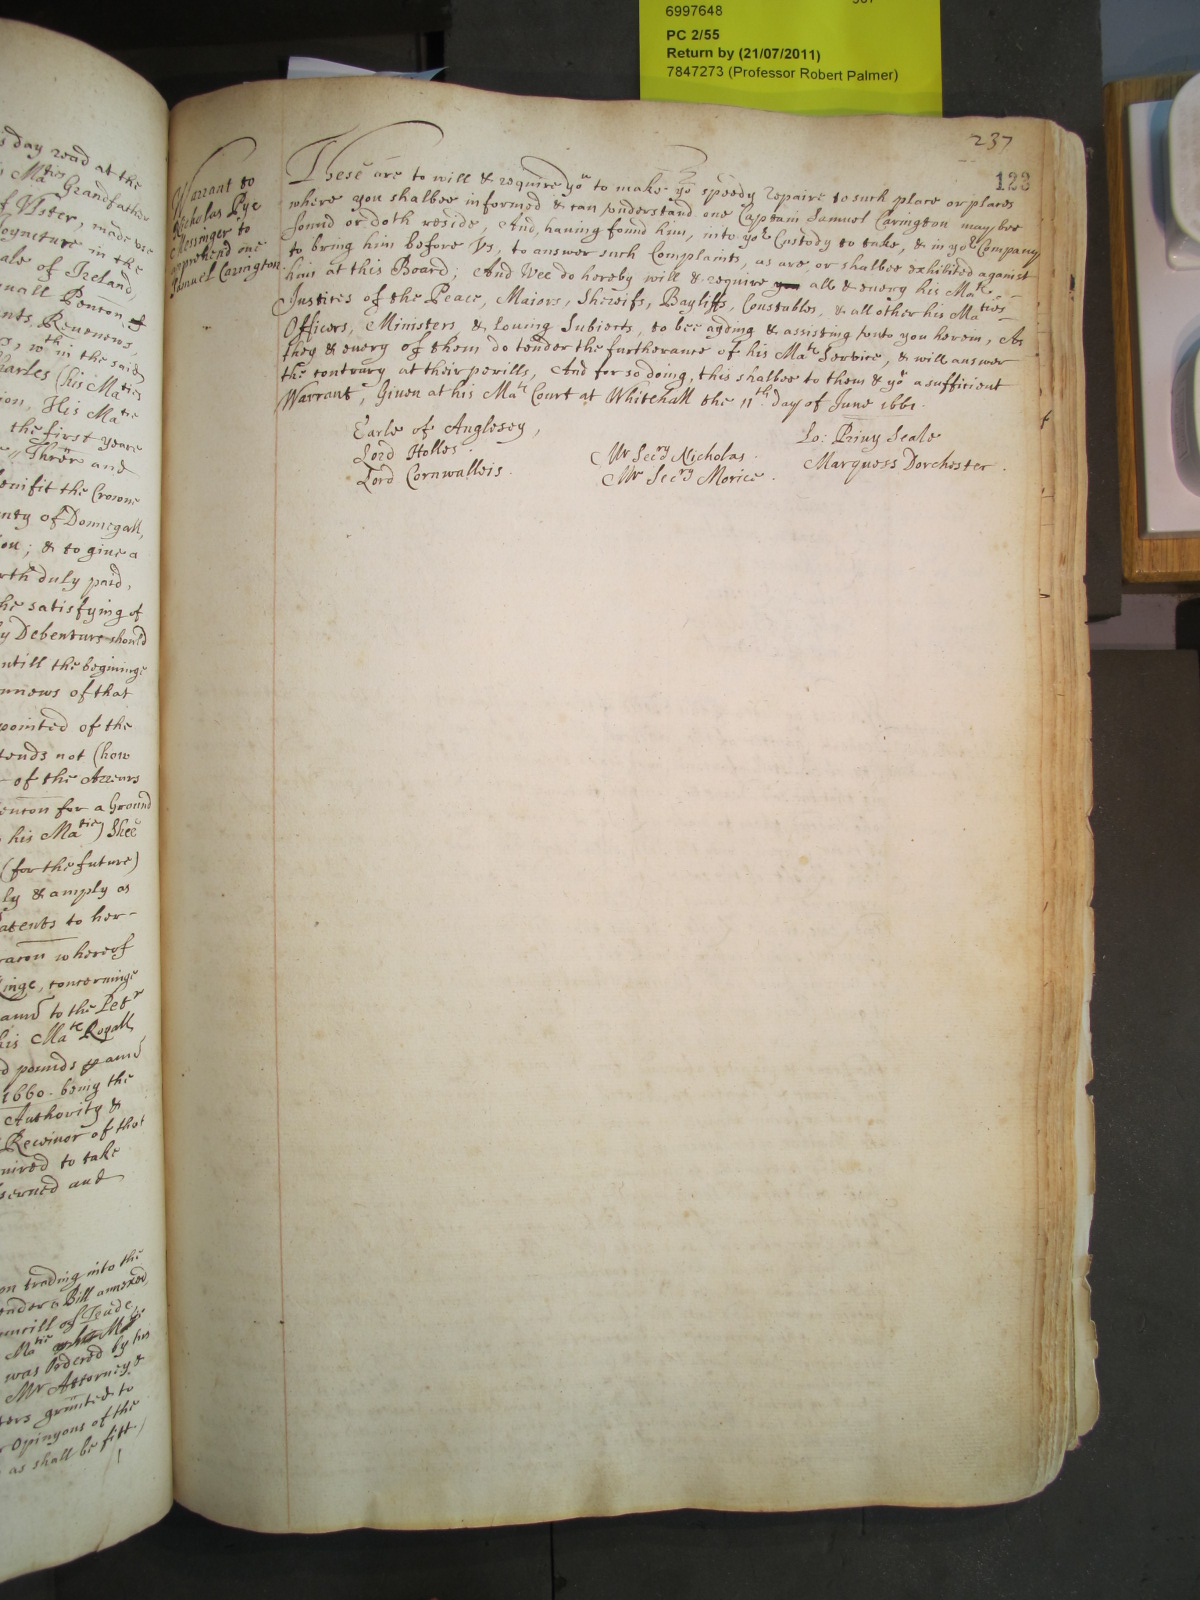 6997648
PC 2/55
Return by (21/07/2011)
7847273 (Professor Robert Palmer)
s day read at the
s Maties Grandfather
f Vlster, made vse
Joyncture in the
ale of Ireland,
nuall Penĉon of
nts, Reuenews,
rs, wthin the said
Charles (his Maties
ion, His Matie
the first yeare
Three and
benifit the Crowne
nty of Donnegall,
ou; & to giue a
rth duly paid,
he satisfying of
y Debenture should
ntill the beginninge
nnews of that
pointed of the
tends not (how
of the Arrears
encon for a Ground
his Matie) Shee
(for the future)
ly & amply as
atents to her-
racon whereof
Kinge, concerninge
and to the Petr
his Mats Royall
d pounds p ann
1660. being the
Authority &
Receiuor of that
uired to take
serned and
on trading into the
ender a Bill annexed
uncill of Trade,
Matie
was Ordered by his
Mr Attorney &
ters granted to
r Opinyons of the
as shall be fitt.
237
123
Warrant to
Nicholas Pye
Messinger to
apprehend one
Samuel Carington
These are to will & require you to make yor speedy repaire to such place or places
where you shalbee informed & can vnderstand one Captain Samuel Carington may bee
found or doth reside, And, having found him, into yor Custody to take, & in yor Company
to bring him before Vs, to answer such Complaints, as are, or shalbee exhibited against
him at this Board; And Wee do hereby will & require you all & euery his Mats
Justices of the Peace, Maiors, Shereifs, Bayliffs, Constables, & all other his Maties
Officers, Ministers, & Louing Subiects, to bee ayding & assisting vnto you herein, As
they & euery of them do tender the furtherance of his Mats Service, & will answer
the contrary at their perills, And for so doing, this shalbee to them & yo a sufficient
Warrant, Given at his Mats Court at Whitehall the 11th day of June 1661.
Earle of Anglesey,
Lord Holles.
Lord Cornwalleis.
Mr Secry Nicholas.
Mr Secry Morice.
Lo: Priuy Seale
Marquess Dorchester.